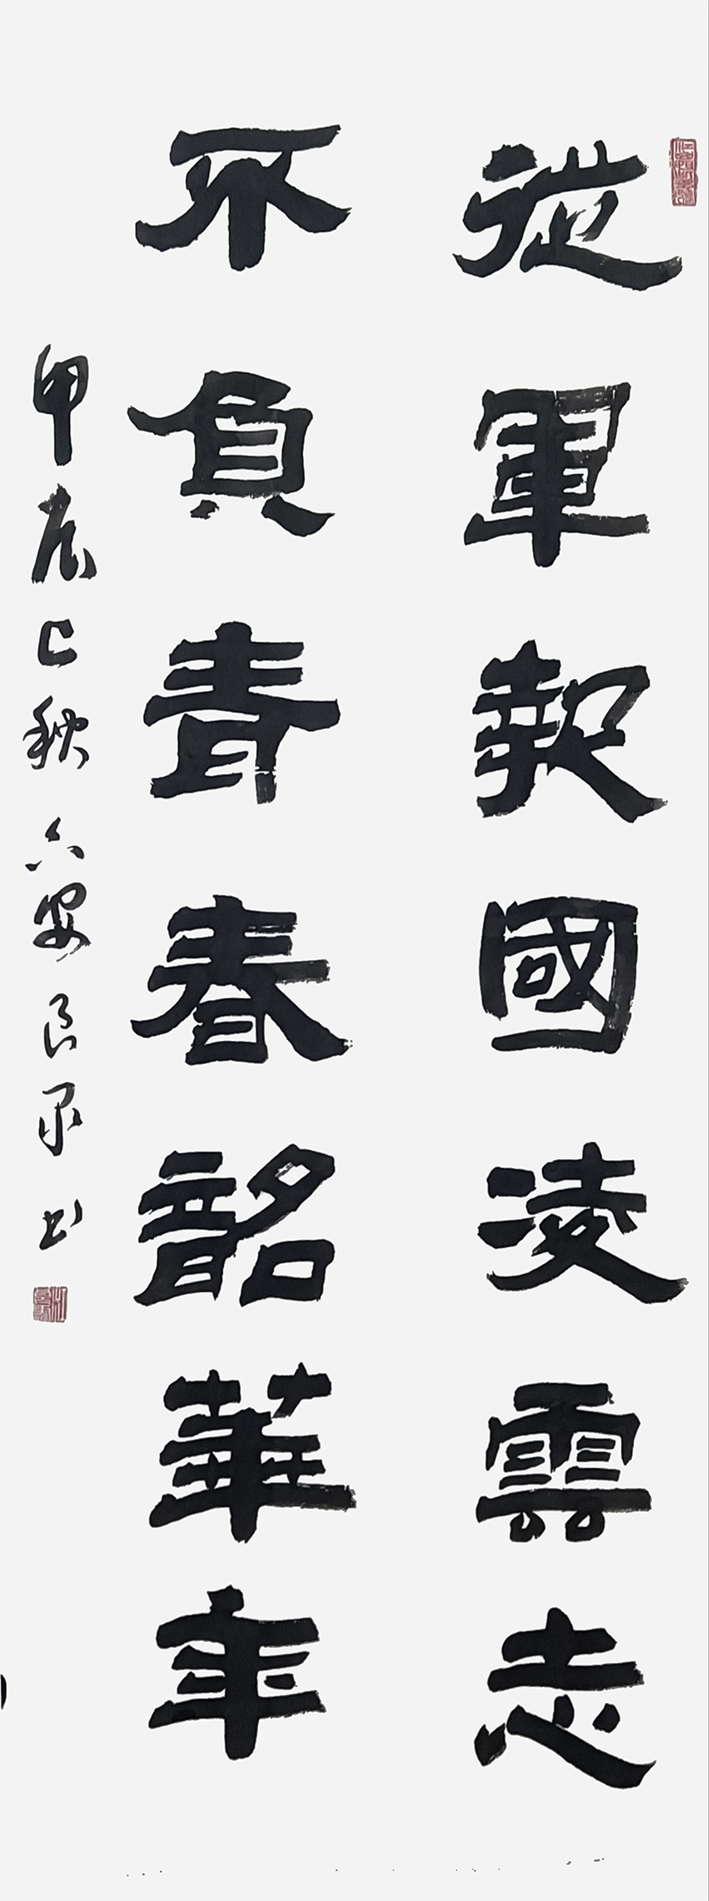 從軍報國凌雲志
不負青春韶華年
甲辰仁秋六安良平書